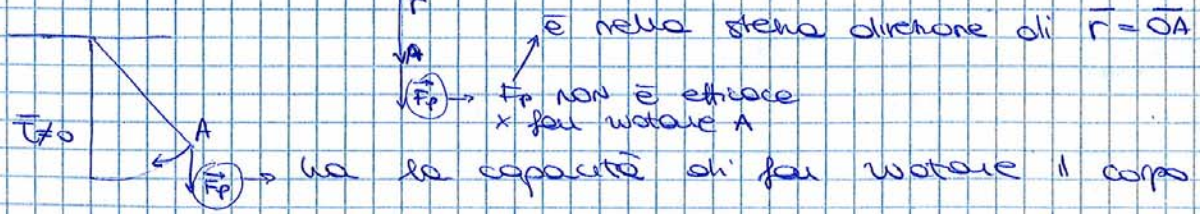 r
è nella stessa direzione di r̄ = ŌA
A
F⃗p → Fp NON è efficace
x far ruotare A
τ̄≠0
A
F⃗p → ha la capacità di far ruotare il corpo